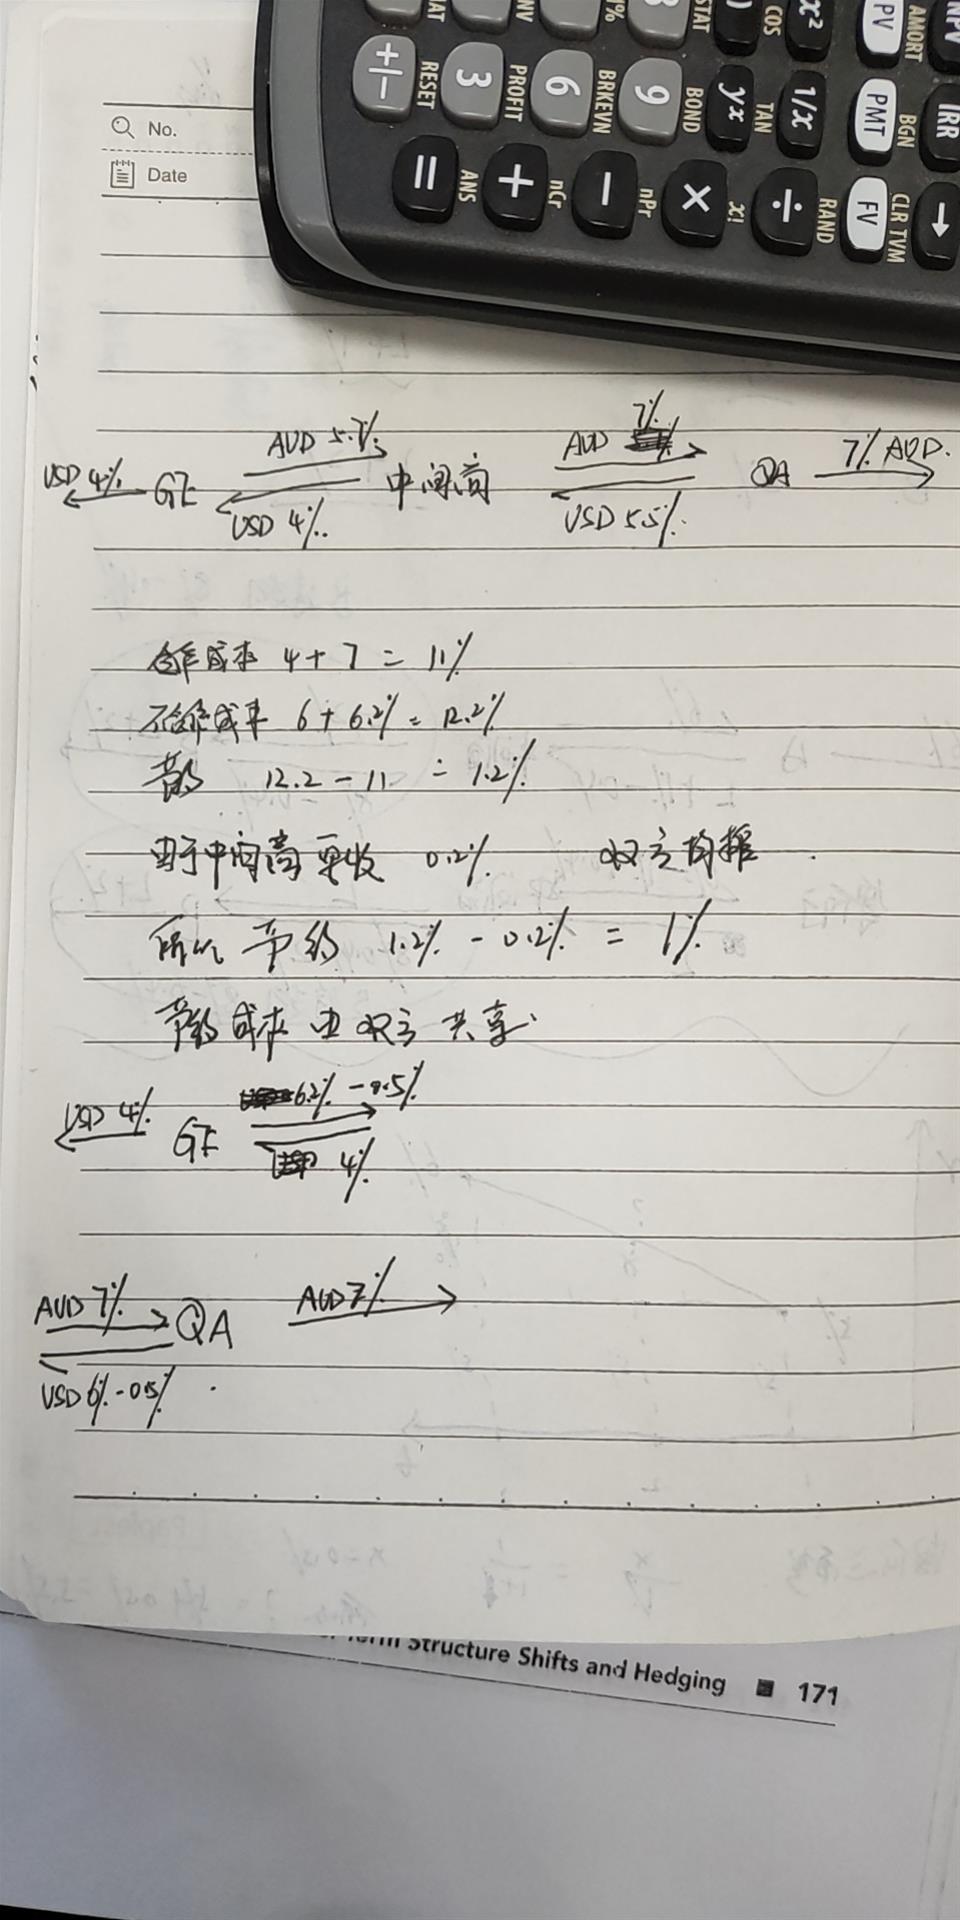 No.
Date
+/- RESET 3 PROFIT 6 BRKEVN 9 BOND yx TAN 1/x PMT BGN IRR
STAT COS x² PV AMORT NPV
= ANS + nCr − nPr × x! ÷ RAND FV CLR TVM ↓
USD 4% GE AUD 5.7% 中间商 AUD 7% QA 7% AUD.
USD 4% USD 5.5%
合作成本 4+7 = 11%
不合作成本 6+6.2% = 12.2%
节约 12.2-11 = 1.2%
由于中间商要收 0.2% 双方均摊
所以 节约 1.2% - 0.2% = 1%
节约成本由双方共享
USD 4% GE 6.2%-0.5%
4%
AUD 7% QA AUD 7%
USD 6%-0.5%
Term Structure Shifts and Hedging ■ 171